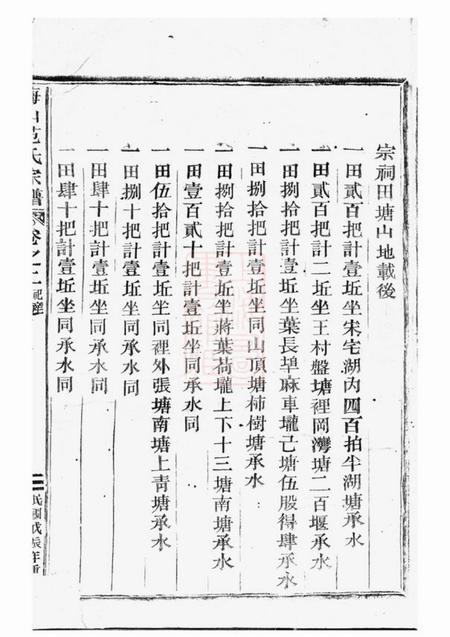 宗祠田塘山地載後
一田貳百把計壹坵坐宋宅湖內四百拍半湖塘承水
一田貳百把計二坵坐王村盤塘裡岡灣塘二百堰承水
一田捌拾把計壹坵坐葉長埠麻車壠己塘伍股得肆承水
一田捌拾把計壹坵坐同山頂塘柿樹塘承水
一田捌拾把計壹坵坐蔣葉荷壠上下十三塘南塘承水
一田壹百貳十把計壹坵坐同承水同
一田伍拾把計壹坵坐同裡外張塘南塘上青塘承水
一田捌十把計壹坵坐同承水同
一田肆十把計壹坵坐同承水同
一田肆十把計壹坵坐同承水同
范氏宗譜 卷之二 祀產
民國戊辰年重